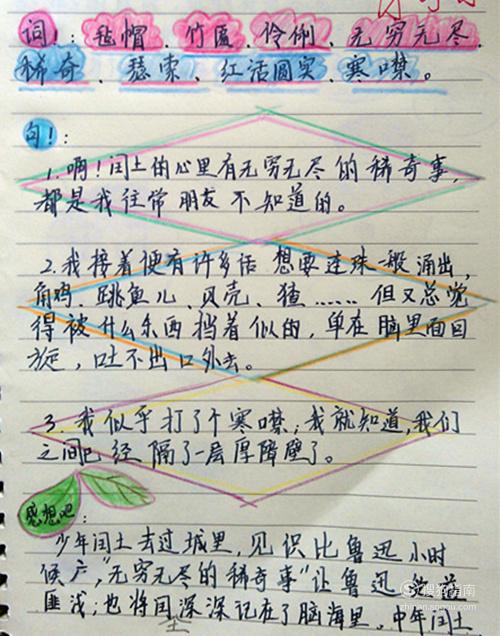 词!：毡帽、竹匾、伶俐、无穷无尽
稀奇、瑟索、红活圆实、寒噤。
句!：
1.啊!闰土的心里有无穷无尽的稀奇事,
都是我往常朋友不知道的。
2.我接着便有许多话想要连珠一般涌出,
角鸡、跳鱼儿、贝壳、猹……但又总觉
得被什么东西挡着似的,单在脑里面回
旋,吐不出口外去。
3.我似乎打了个寒噤;我就知道,我们
之间已经隔了一层厚障壁了。
感想吧：
少年闰土去过城里,见识比鲁迅小时
候广,"无穷无尽的稀奇事"让鲁迅
匪浅;也将闰深深记在了脑海里。中年闰土
土
搜狗指南
zhinan.sogou.com